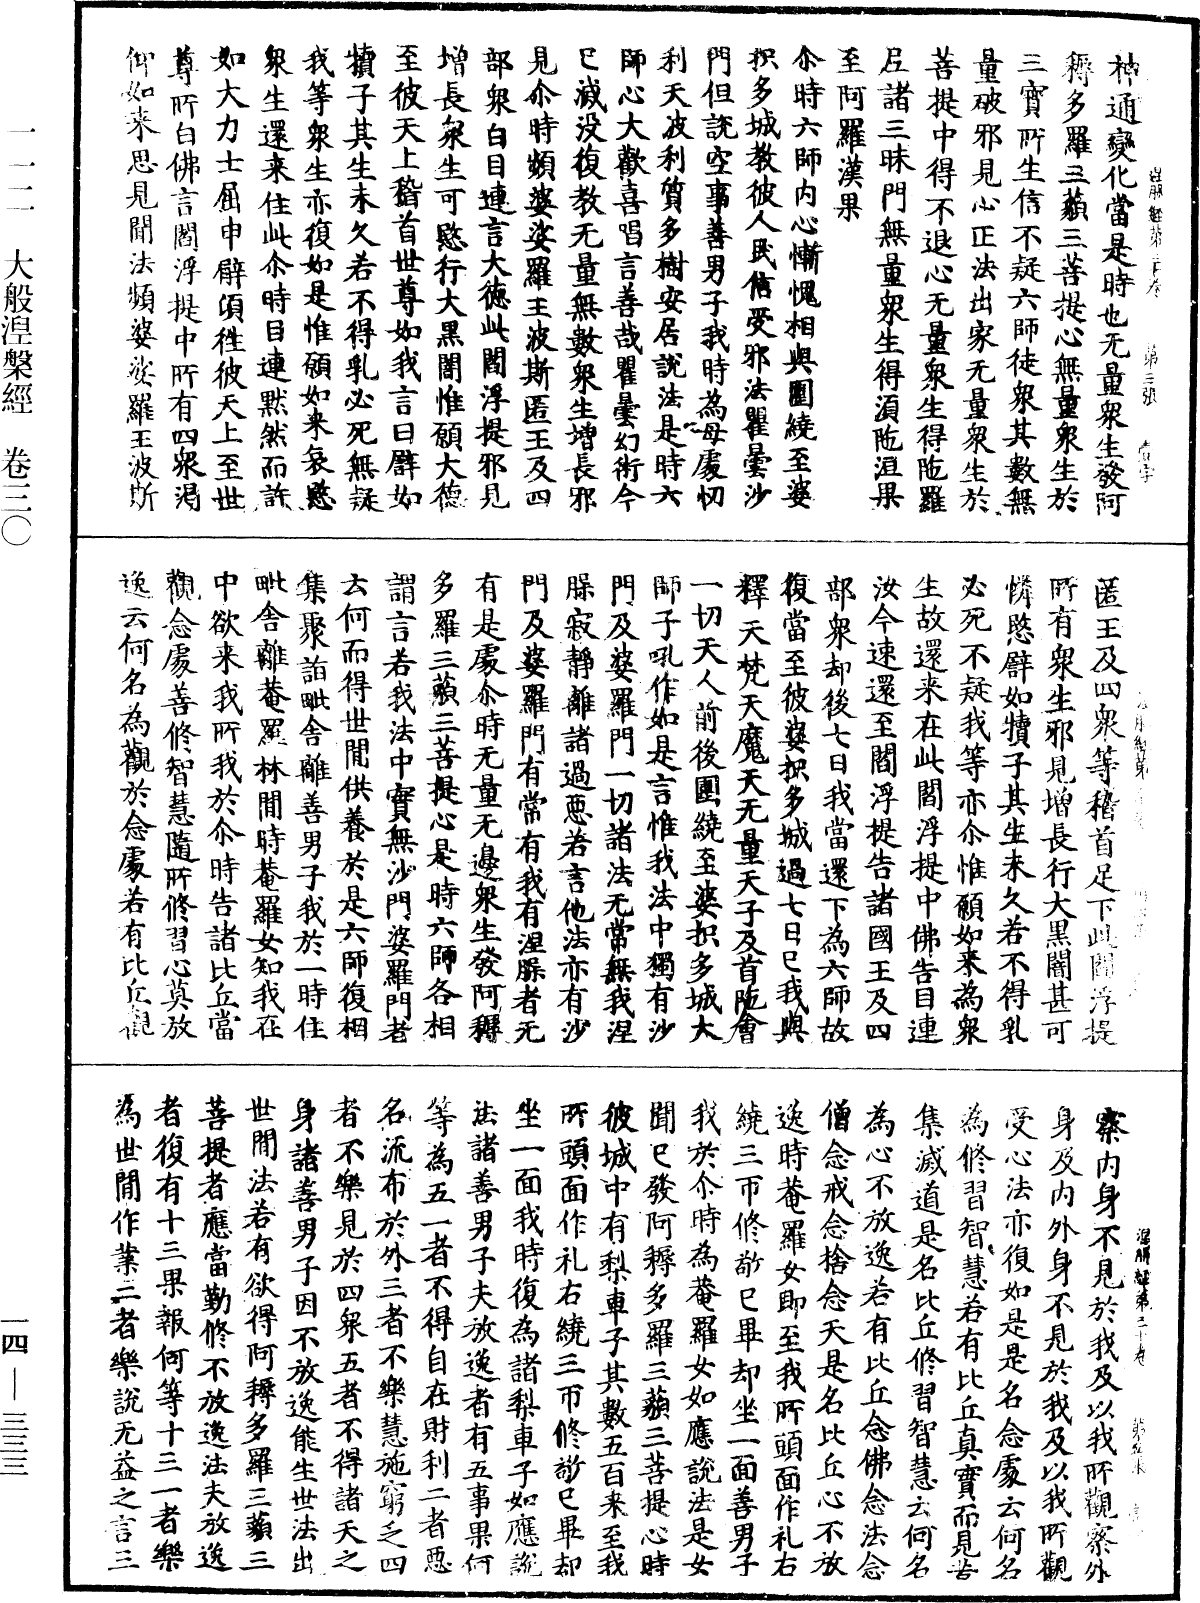 一一二　大般涅槃經　卷三〇
神通變化當是時也无量衆生發阿
耨多羅三藐三菩提心無量衆生於
三寶所生信不疑六師徒衆其數無
量破邪見心正法出家无量衆生於
菩提中得不退心无量衆生得陁羅
尼諸三昧門無量衆生得湏陁洹果
至阿羅漢果
尒時六師內心慚愧相與圍繞至婆
枳多城教彼人民信受邪法瞿曇沙
門但說空事善男子我時為母處忉
利天波利質多樹安居說法是時六
師心大歡喜唱言善哉瞿曇幻術今
已滅没復教无量無數衆生增長邪
見尒時頻婆娑羅王波斯匿王及四
部衆白目連言大德此閻浮提邪見
增長衆生可愍行大黑闇惟願大德
至彼天上稽首世尊如我言曰譬如
犢子其生未久若不得乳必死無疑
我等衆生亦復如是惟願如來哀愍
衆生還來住此尒時目連黙然而許
如大力士屈申臂頃往彼天上至世
尊所白佛言閻浮提中所有四衆渴
仰如来思見聞法頻婆娑羅王波斯
匿王及四衆等稽首足下此閻浮提
所有衆生邪見增長行大黑闇甚可
憐愍譬如犢子其生未久若不得乳
必死不疑我等亦尒惟願如来為衆
生故還来在此閻浮提中佛告目連
汝今速還至閻浮提告諸國王及四
部衆却後七日我當還下為六師故
復當至彼婆枳多城過七日已我與
釋天梵天魔天无量天子及首陁會
一切天人前後圍繞至婆枳多城大
師子吼作如是言惟我法中獨有沙
門及婆羅門一切諸法无常無我涅
槃寂靜離諸過惡若言他法亦有沙
門及婆羅門有常有我有涅槃者无
有是處尒時无量无邊衆生發阿耨
多羅三藐三菩提心是時六師各相
謂言若我法中實無沙門婆羅門者
云何而得世間供養於是六師復相
集聚詣毗舍離善男子我於一時住
毗舍離菴羅林間時菴羅女知我在
中欲来我所我於尒時告諸比丘當
觀念處善修智慧隨所修習心莫放
逸云何名為觀於念處若有比丘觀
察内身不見於我及以我所觀察外
身及内外身不見於我及以我所觀
受心法亦復如是是名念處云何名
為修習智慧若有比丘真實而見苦
集滅道是名比丘修習智慧云何名
為心不放逸若有比丘念佛念法念
僧念戒念捨念天是名比丘心不放
逸時菴羅女即至我所頭面作礼右
繞三帀修敬已畢却坐一面善男子
我於尒時為菴羅女如應說法是女
聞已發阿耨多羅三藐三菩提心時
彼城中有梨車子其數五百来至我
所頭面作礼右繞三帀修敬已畢却
坐一面我時復為諸梨車子如應說
法諸善男子夫放逸者有五事果何
等為五一者不得自在財利二者惡
名流布於外三者不樂慧施窮乏四
者不樂見於四衆五者不得諸天之
身諸善男子因不放逸能生世法出
世間法若有欲得阿耨多羅三藐三
菩提者應當勤修不放逸法夫放逸
者復有十三果報何等十三一者樂
為世間作業二者樂說无益之言三
一四—三三三